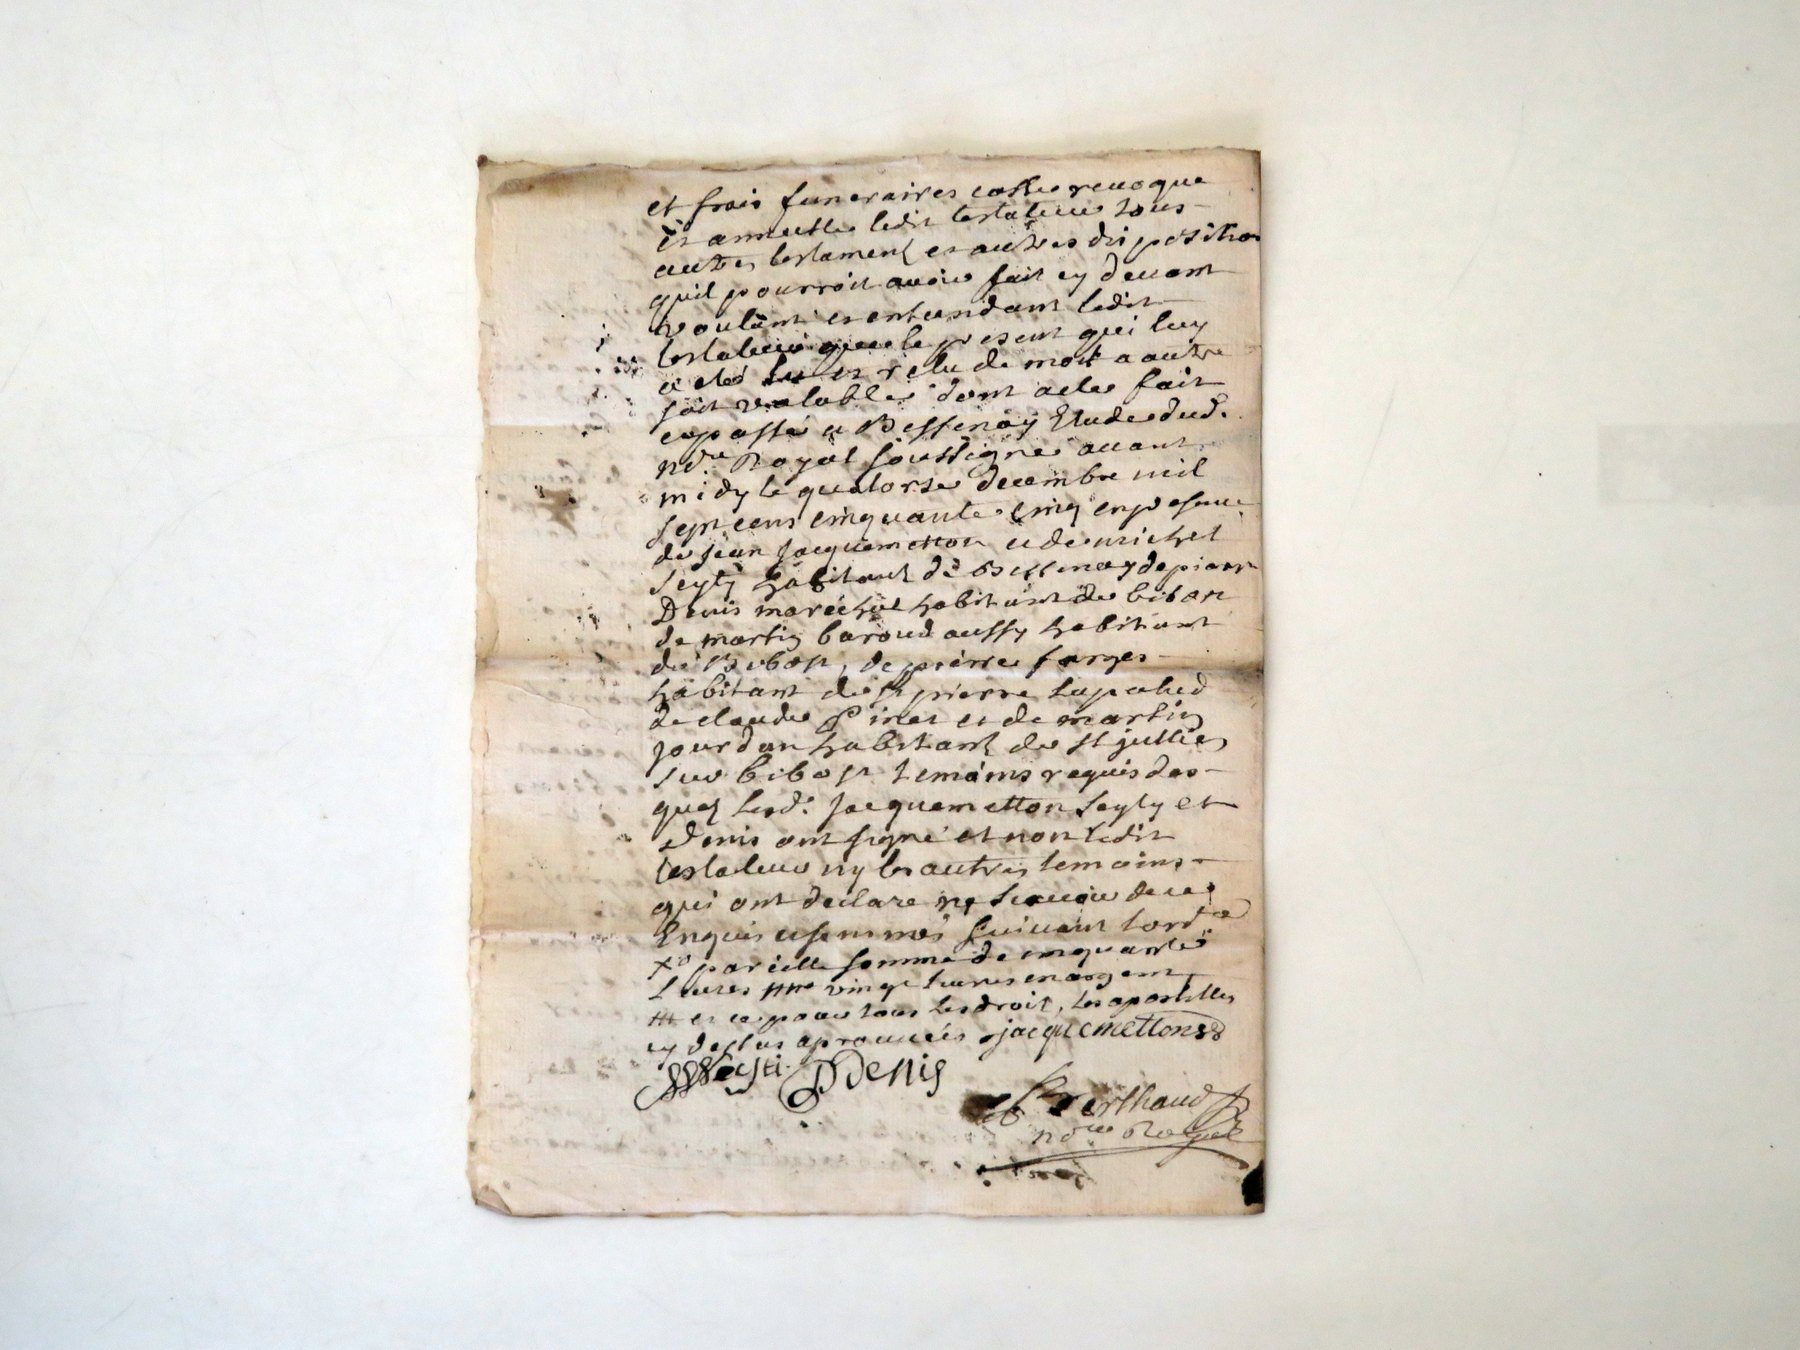 et frais funeraires casse revoque
et annulle ledit testateur tous
autres testament et autres disposition
quil pourroit avoir fait cy devant
voulant et entendant ledit
testateur que le present qui luy
a eté lu et relu de mot a autre
soit valable dont acte fait
et passé a Bessenay Etude dud.
nore Royal soussigné avant
midy le quatorse decembre mil
sept cens cinquante cinq en presence
de jean jacquemetton et de michel
habitant de Bessenay de pierre
Denis maréchal habitant de bibost
de martin baroud aussy habitant
de Bibost, de pierre farges
habitant de st pierre lapalud
de claude Pinet et de martin
jourdan habitant de st jullien
sur bibost temoins requis des
quels lesd. jacquemetton et
Denis ont signé et non ledit
testateur ny les autres temoins
qui ont declaré ne scavoir de ce
Enquis et sommés suivant lord
par icelle somme de cinquante
Livres vingt livres en argent
et ce pour tous les droit, les apostilles
cy dessus aprouvées jacquemetton
Denis
Berthaud
nore Royal